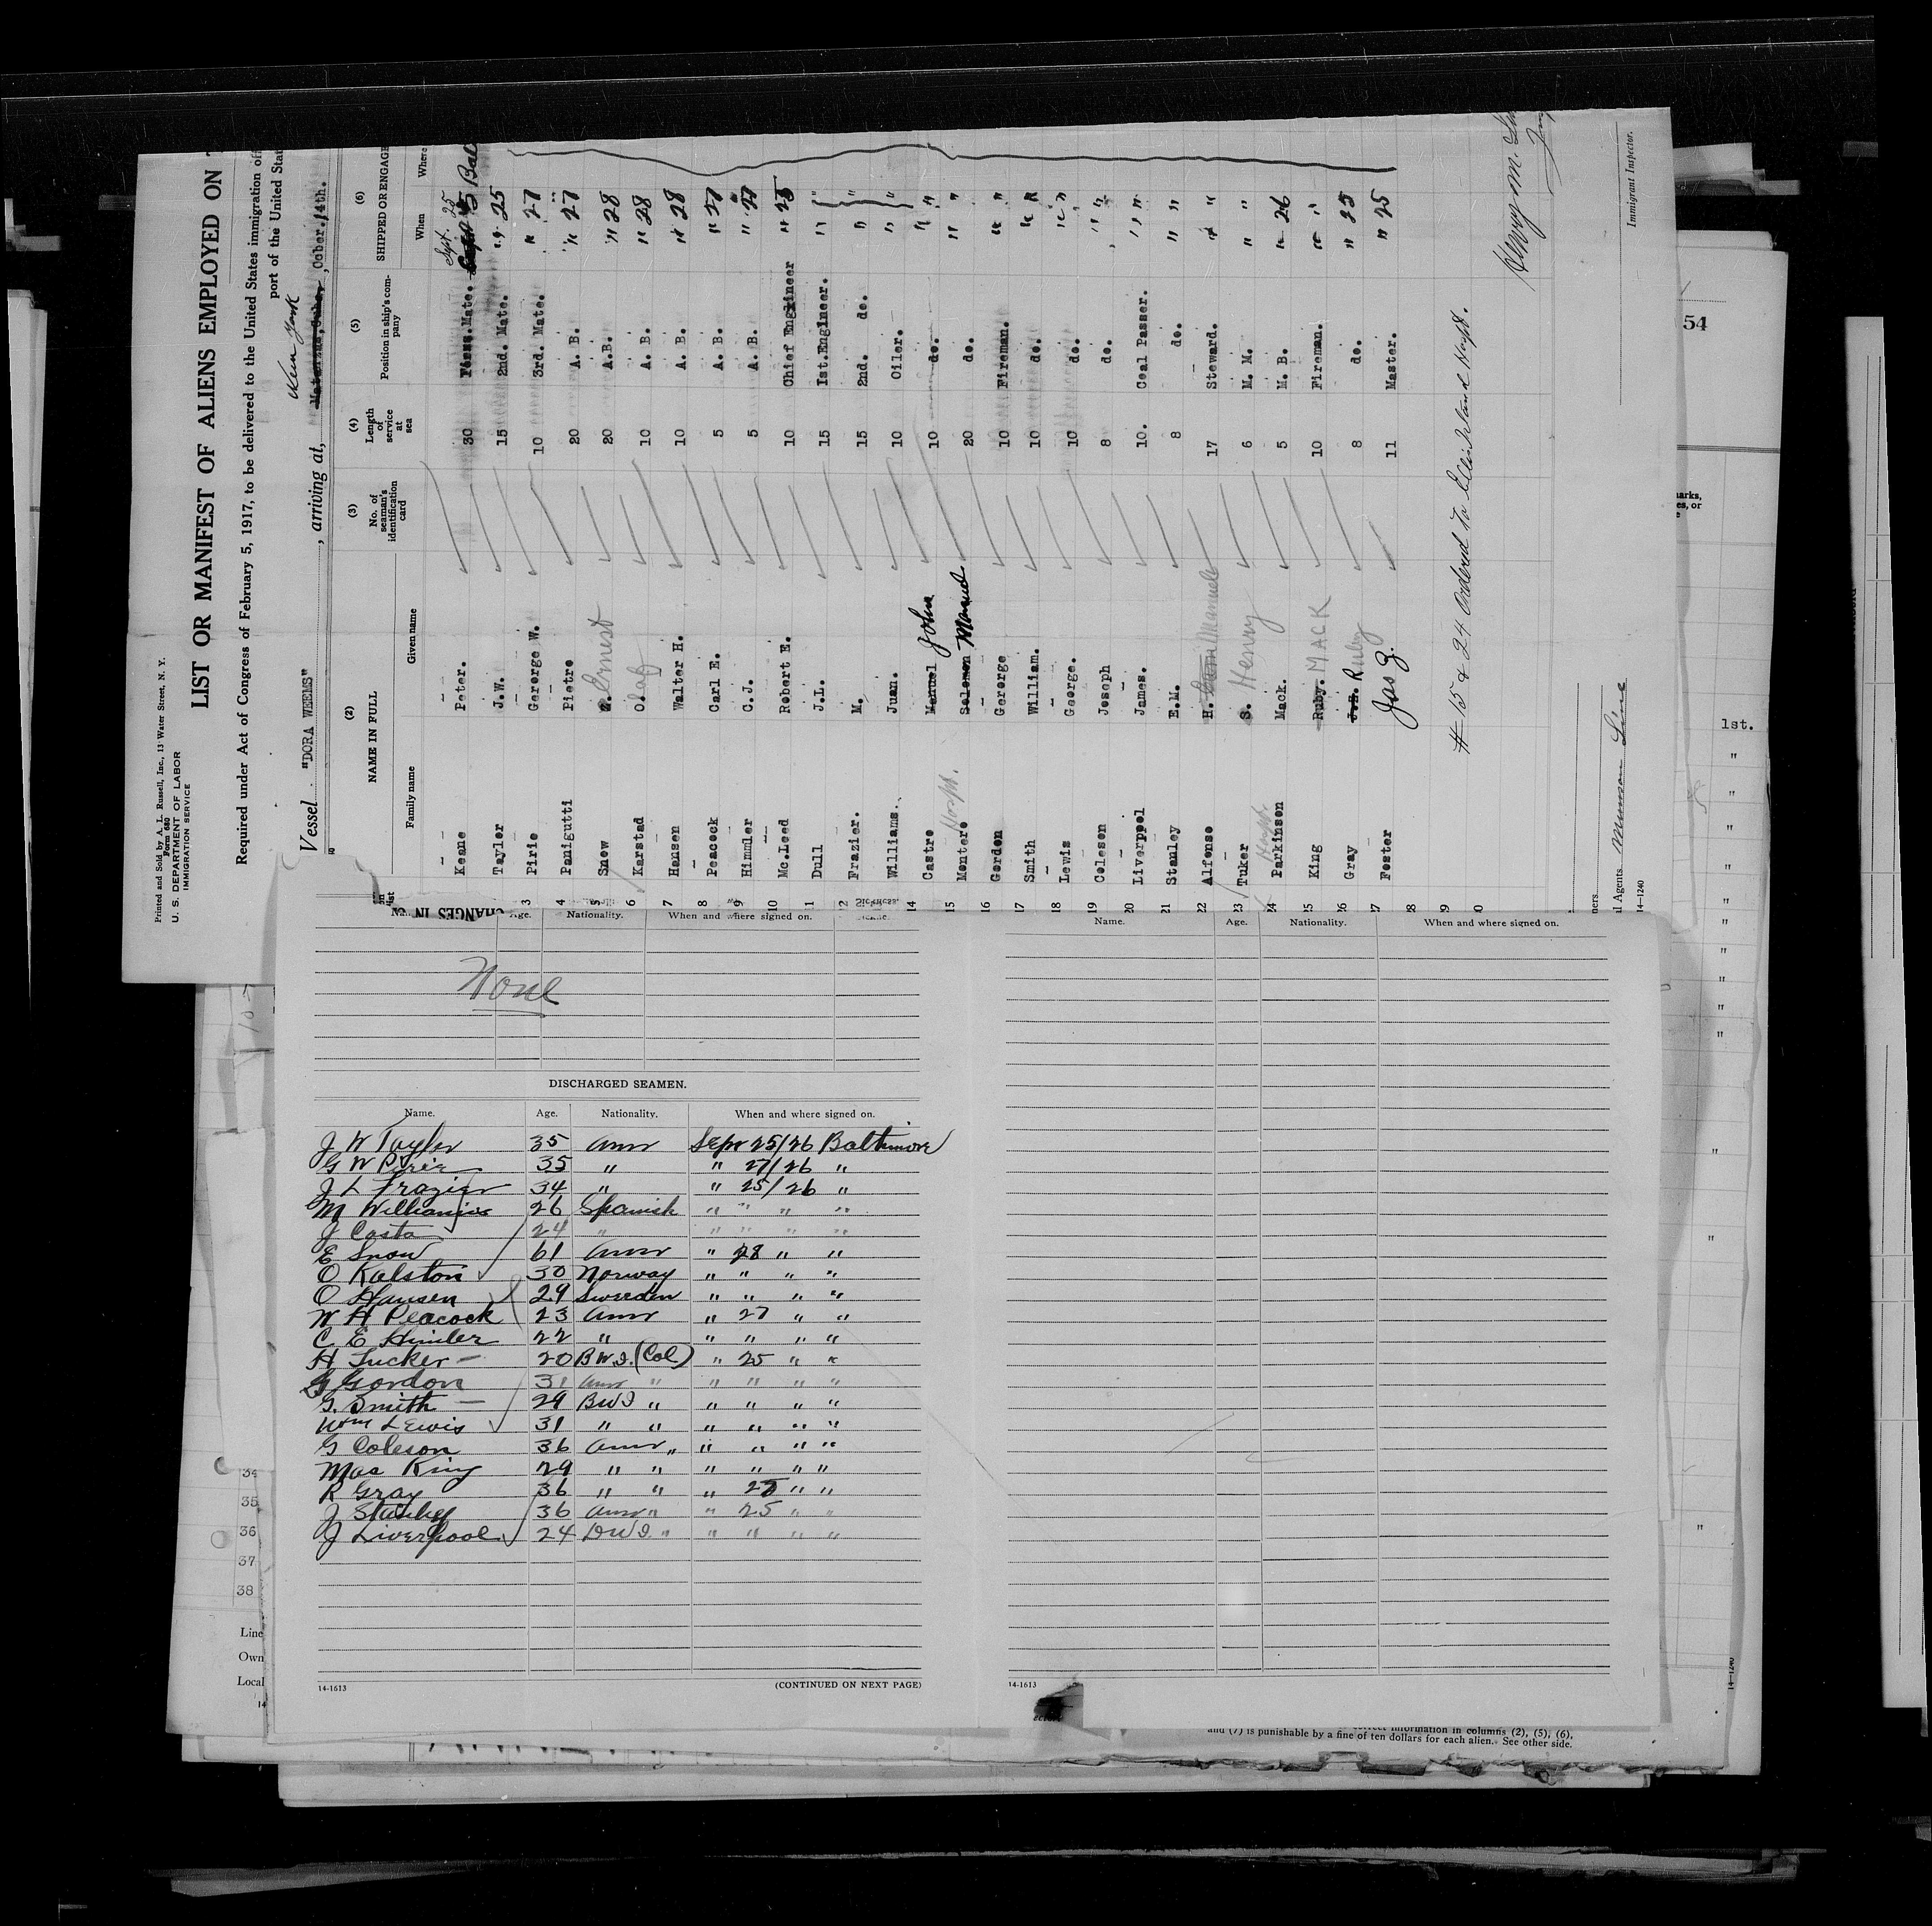 Printed and Sold by A. L. Russell, Inc., 13 Water Street, N. Y.
Form 680
U. S. DEPARTMENT OF LABOR
IMMIGRATION SERVICE
LIST OR MANIFEST OF ALIENS EMPLOYED ON
Required under Act of Congress of February 5, 1917, to be delivered to the United States immigration
port of the United
New York
Vessel "DORA WEEMS", arriving at, Matanzas, Cuba, Ocber. 14th.
(2) (3) (4) (5) (6)
NAME IN FULL No. of seaman's identification card Length of service at sea Position in ship's company SHIPPED OR ENGAGE
Family name Given name When Where
Keane Peter. 30 Mate. Sept. 25
Tayler J.W. 15 2nd. Mate. " 25
3 Pirie Gererge W. 10 3rd. Mate. " 27
4 Panigutti Pietre 20 A. B. " 27
5 Snew Ernest 20 A.B. " 28
6 Karstad Olaf 10 A. B. " 28
7 Hansen Walter H. 10 A. B. " 28
Peacock Carl E. 5 A. B. " 27
9 Himmler C.J. 5 A. B. " 27
10 Mc.Leed Robert E. 10 Chief Engineer " 25
11 Dull J.L. 15 Ist.Engineer. " "
12 Frazier. M. 15 2nd. de. " "
Williams. Juan. 10 Oiler. " "
14 Castre Manuel John 10 de. " "
15 Mentere Hospt. Selemen Manuel 20 de. " "
16 Gerden Gererge 10 Fireman. " "
17 Smith William. 10 de. " "
18 Lewis George. 10 de. " "
19 Celesen Jeseph 8 de. " "
20 Liverppel James. 10. Ceal Passer. " "
21 Stanley E.M. 8 de. " "
22 Alfense H. Manuel 17 Steward. " "
23 Tuker S. Henry 6 M. M. " "
24 Parkinsen Hospt. Mack. 5 M. B. " 26
25 King Ruby. MACK 10 Fireman. " "
26 Gray Ruby 8 de. " 25
27 Fester Jas Z. 11 Master. " 25
28
29
30
# 15 & 24 Ordered to Ellis Island Hospt.
Henry M.
Immigrant Inspector.
Agents. Munson Line
14-1240
54
1st.
CHANGES IN
Age. Nationality. When and where signed on.
Name. Age. Nationality. When and where signed on.
None
DISCHARGED SEAMEN.
Name. Age. Nationality. When and where signed on.
J W Taylor 35 Amr Sepr 25/26 Baltimore
G W Pirie 35 " " 27/26 "
J L Frazier 34 " " 25/26 "
M Williams 26 Spanish " " " "
J Casta 24 " " " " "
E Snow 61 Amr " 28 " "
O Kalston 30 Norway " " " "
O Hansen 29 Sweeden " " " "
W H Peacock 23 Amr " 27 " "
C E Himler 22 " " " " "
H Tucker 20 B W I. (Col) " 25 " "
G Gordon 31 Amr " " " " "
G. Smith 29 BWI " " " " "
Wm Lewis 31 " " " " " "
G Coleson 36 Amr " " " " "
Mac King 29 " " " " " "
R Gray 36 " " " 27 " "
J Stanley 36 Amr " " 25 " "
J Liverpool 24 BWI. " " " " "
34
35
36
37
38
Line
Own
Local
14-1613 (CONTINUED ON NEXT PAGE) 14-1613
correct information in columns (2), (5), (6),
and (7) is punishable by a fine of ten dollars for each alien. See other side.
14-1240